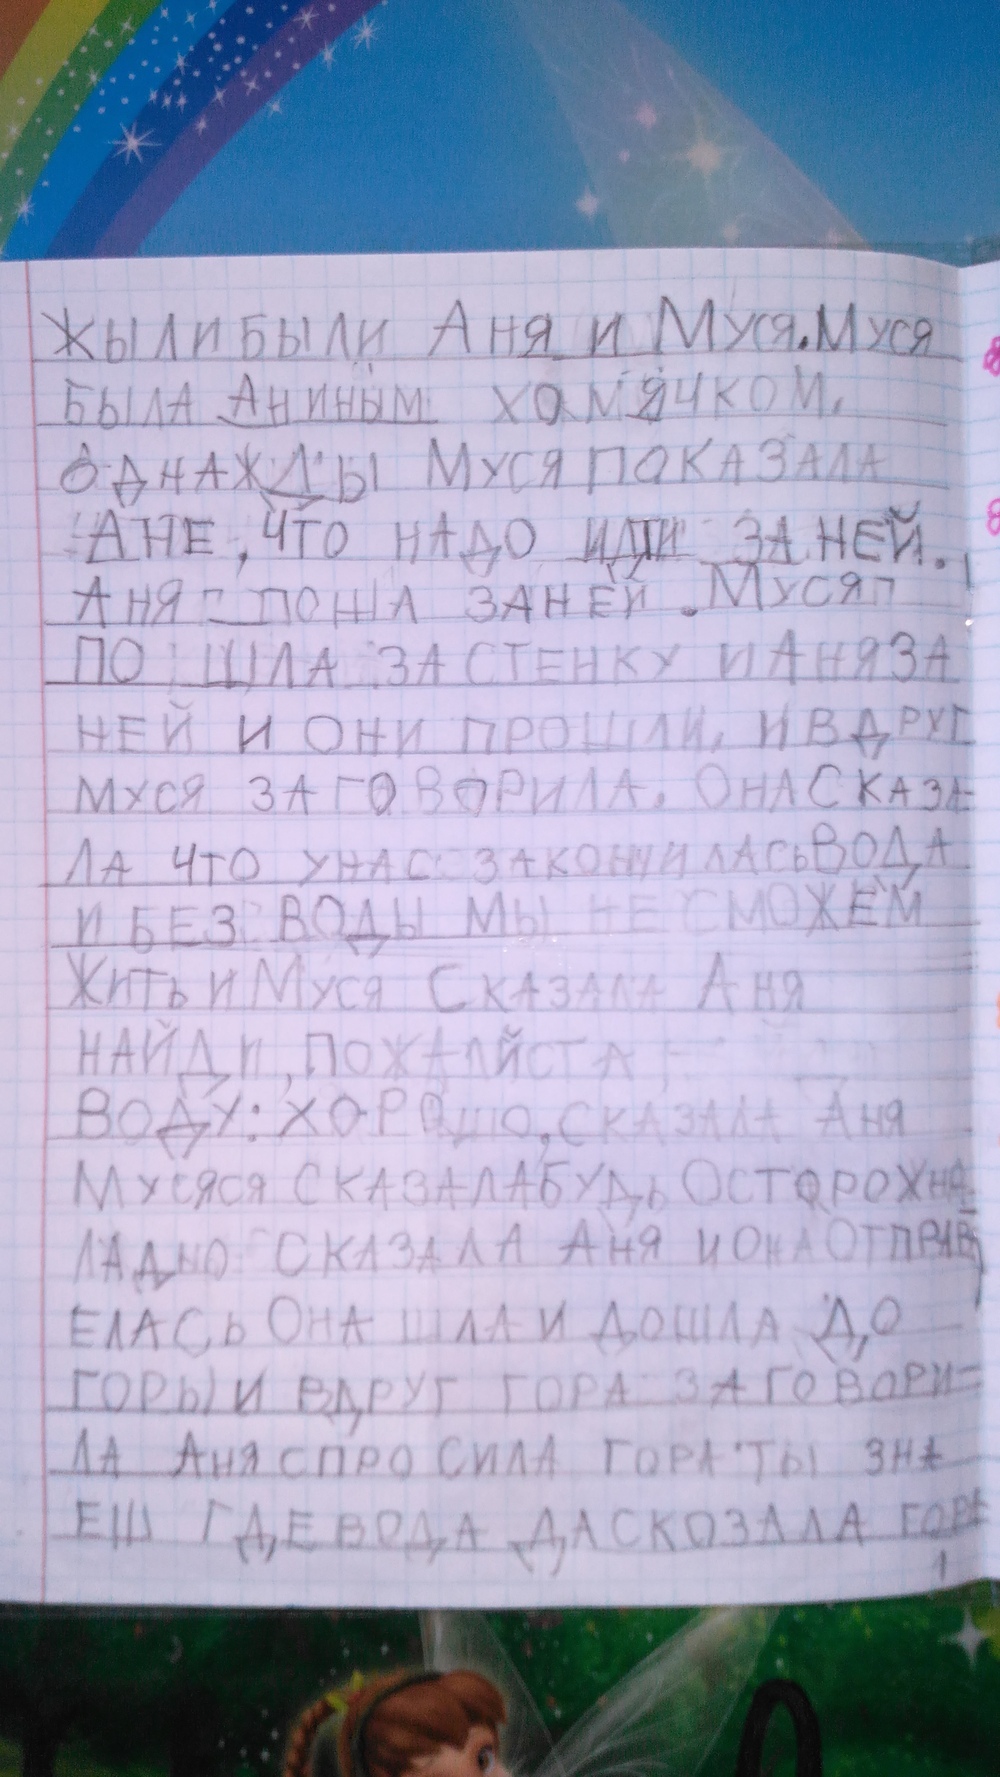 ЖЫЛИ БЫЛИ АНЯ И МУСЯ. МУСЯ
БЫЛА АНИНЫМ ХОМЯЧКОМ.
ОДНАЖДЫ МУСЯ ПОКАЗАЛА
АНЕ, ЧТО НАДО ИДТИ ЗА НЕЙ.
АНЯ ПОШЛА ЗА НЕЙ. МУСЯ П
ПОШЛА ЗА СТЕНКУ И АНЯ ЗА
НЕЙ И ОНИ ПРОШЛИ, И ВДРУГ
МУСЯ ЗАГОВОРИЛА. ОНА СКАЗА-
ЛА ЧТО У НАС ЗАКОНЧИЛАСЬ ВОДА
И БЕЗ ВОДЫ МЫ НЕ СМОЖЕМ
ЖИТЬ И МУСЯ СКАЗАЛА АНЯ
НАЙДИ, ПОЖАЛЙСТА
ВОДУ: ХОРОШО, СКАЗАЛА АНЯ
МУСЯСЯ СКАЗАЛА БУДЬ ОСТОРОЖНА
ЛАДНО СКАЗАЛА АНЯ И ОНА ОТПРАВ
ЕЛАСЬ ОНА ШЛА И ДОШЛА ДО
ГОРЫ И ВДРУГ ГОРА ЗАГОВОРИ-
ЛА АНЯ СПРОСИЛА ГОРА ТЫ ЗНА
ЕШ ГДЕ ВОДА ДА СКОЗАЛА ГОРА
1